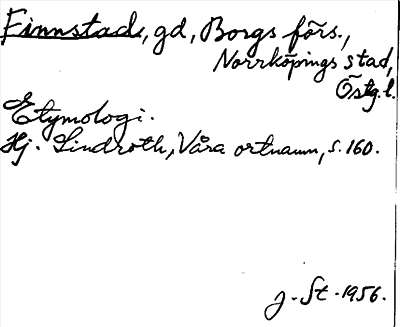 Finnstad, gd, Borgs förs.,
Norrköpings stad,
Östg. l.
Etymologi.
Hj. Lindroth, Våra ortnamn, s. 160.
J. St. 1956.